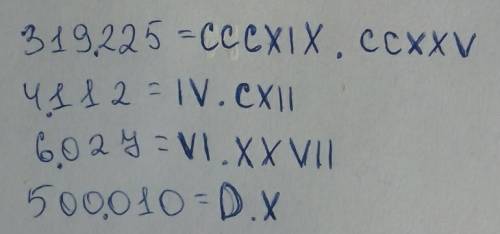 319.225 = CCCXIX. CCXXV
4.112 = IV. CXII
6.027 = VI. XXVII
500.010 = D.X